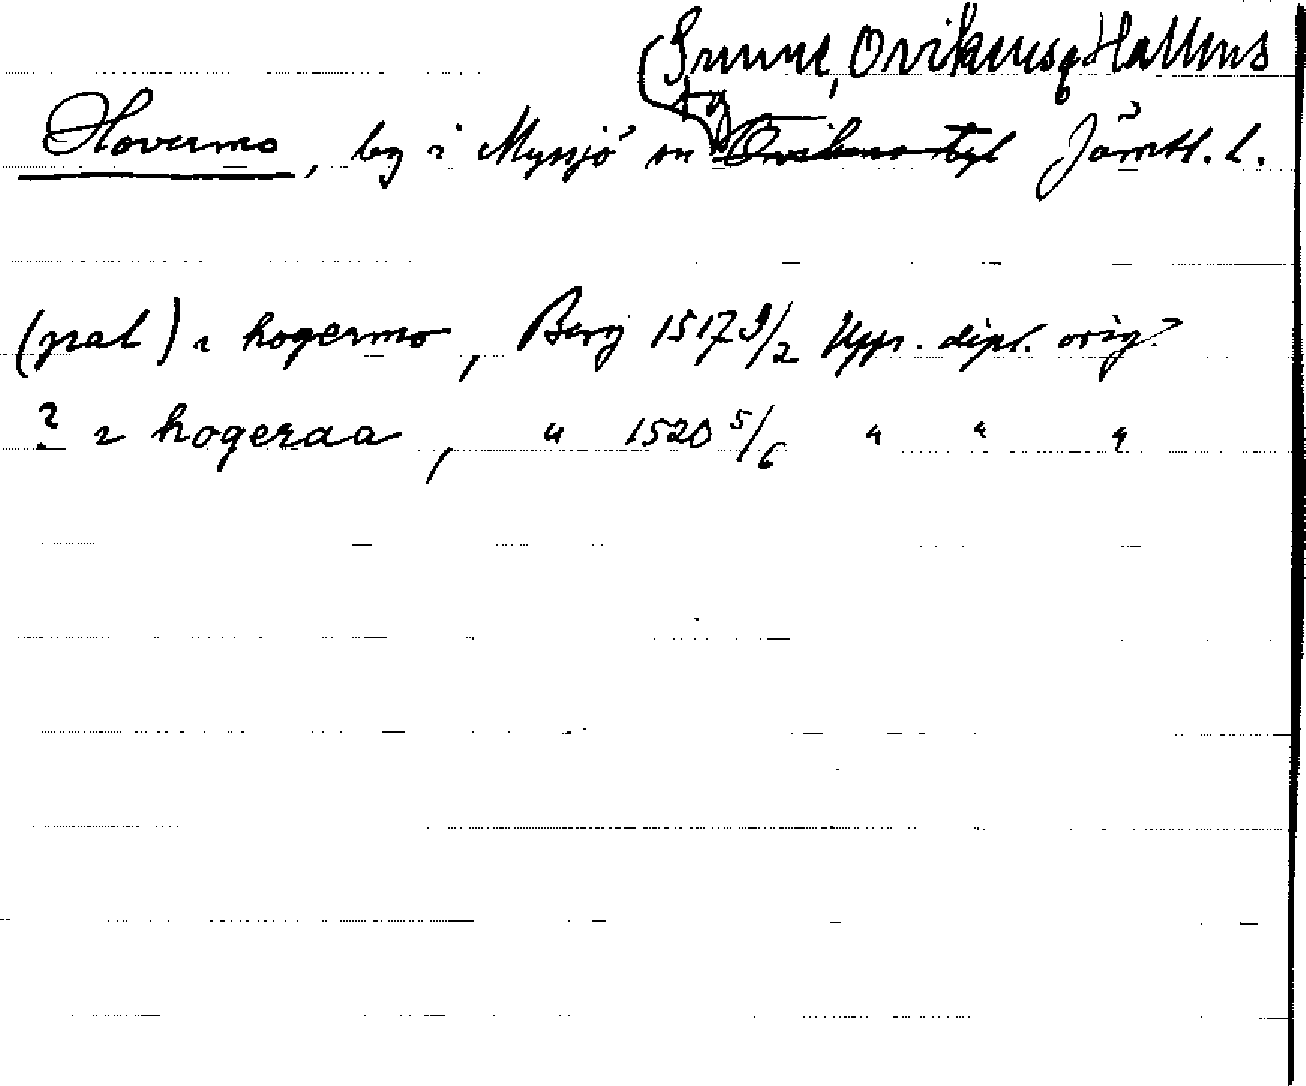 Sunne, Ovikens o Hallens
tg
Hovermo, by i Myssjö sn Ovikens tgl Jämtl. L.
(pal) i hogermo, Berg 1517 9/2 Upps. dipl. orig.
? i hogeraa, " 1520 5/6 " " "